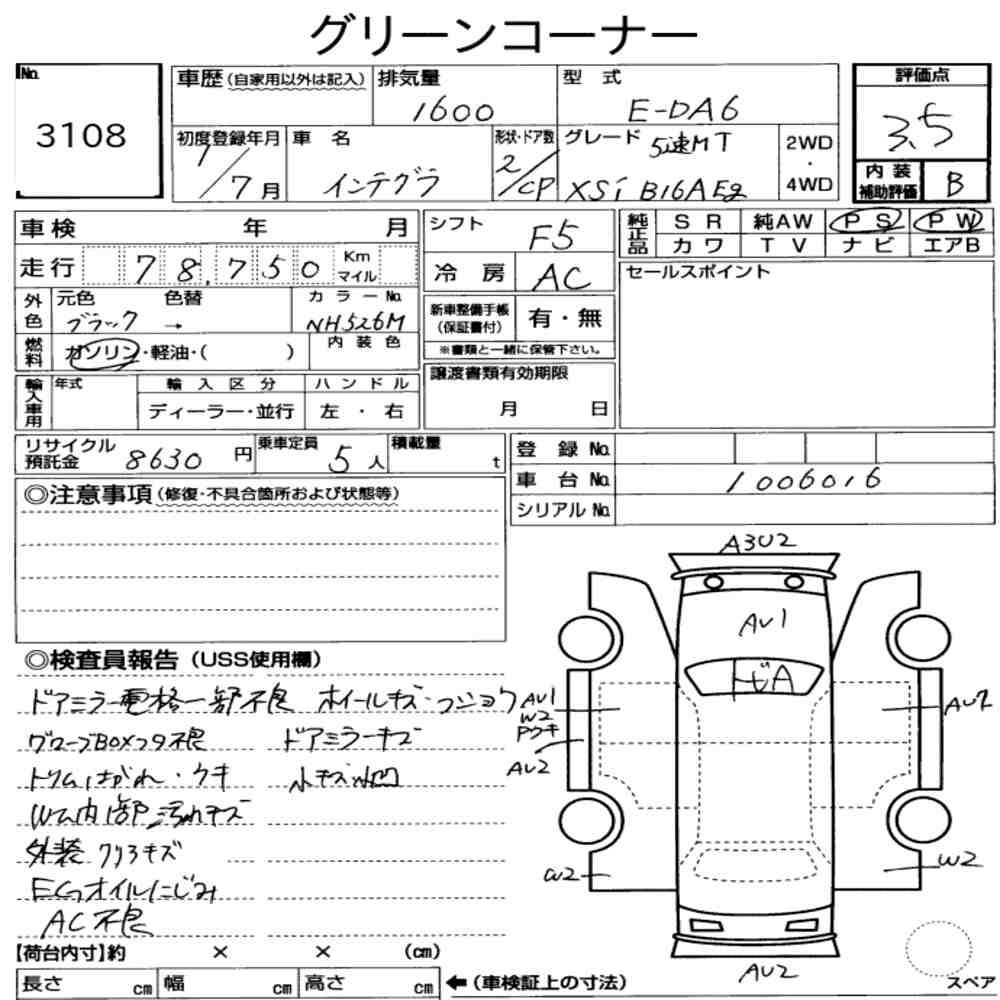 グリーンコーナー
No. 3108
車歴 (自家用以外は記入) 排気量 1600 型 式 E-DA6
初度登録年月 1/7月 車 名 インテグラ 形状・ドア数 2/CP グレード 5速MT XSi B16AEg 2WD・4WD
評価点 3.5
内装補助評価 B
車検 年 月
走行 78,750 Km マイル
外色 元色 ブラック → 色替 カラーNo. NH526M
燃料 ガソリン・軽油・( ) 内装色
輸入車用 年式 輸入区分 ディーラー・並行 ハンドル 左・右
シフト F5
冷房 AC
新車整備手帳(保証書付) 有・無
※書類と一緒に保管下さい。
譲渡書類有効期限
月 日
純正品 SR 純AW PS PW
カワ TV ナビ エアB
セールスポイント
リサイクル預託金 8630 円 乗車定員 5 人 積載量 t
登 録 No.
車 台 No. 1006016
シリアル No.
◎注意事項 (修復・不具合箇所および状態等)
◎検査員報告 (USS使用欄)
ドアミラー電格一部不良 ホイールキズ・フショク
グローブBOXフタ不良 ドアミラーキズ
トリムはがれ・ウキ 小キズ小凹
W厶内部汚れキズ
外装クリヨキズ
EGオイルにじみ
AC不良
A3U2
AU1
トビA
AU1
W2
Pウキ
AU2
AU2
W2
W2
AU2
スペア
【荷台内寸】約 × × (cm)
長さ cm 幅 cm 高さ cm ←(車検証上の寸法)